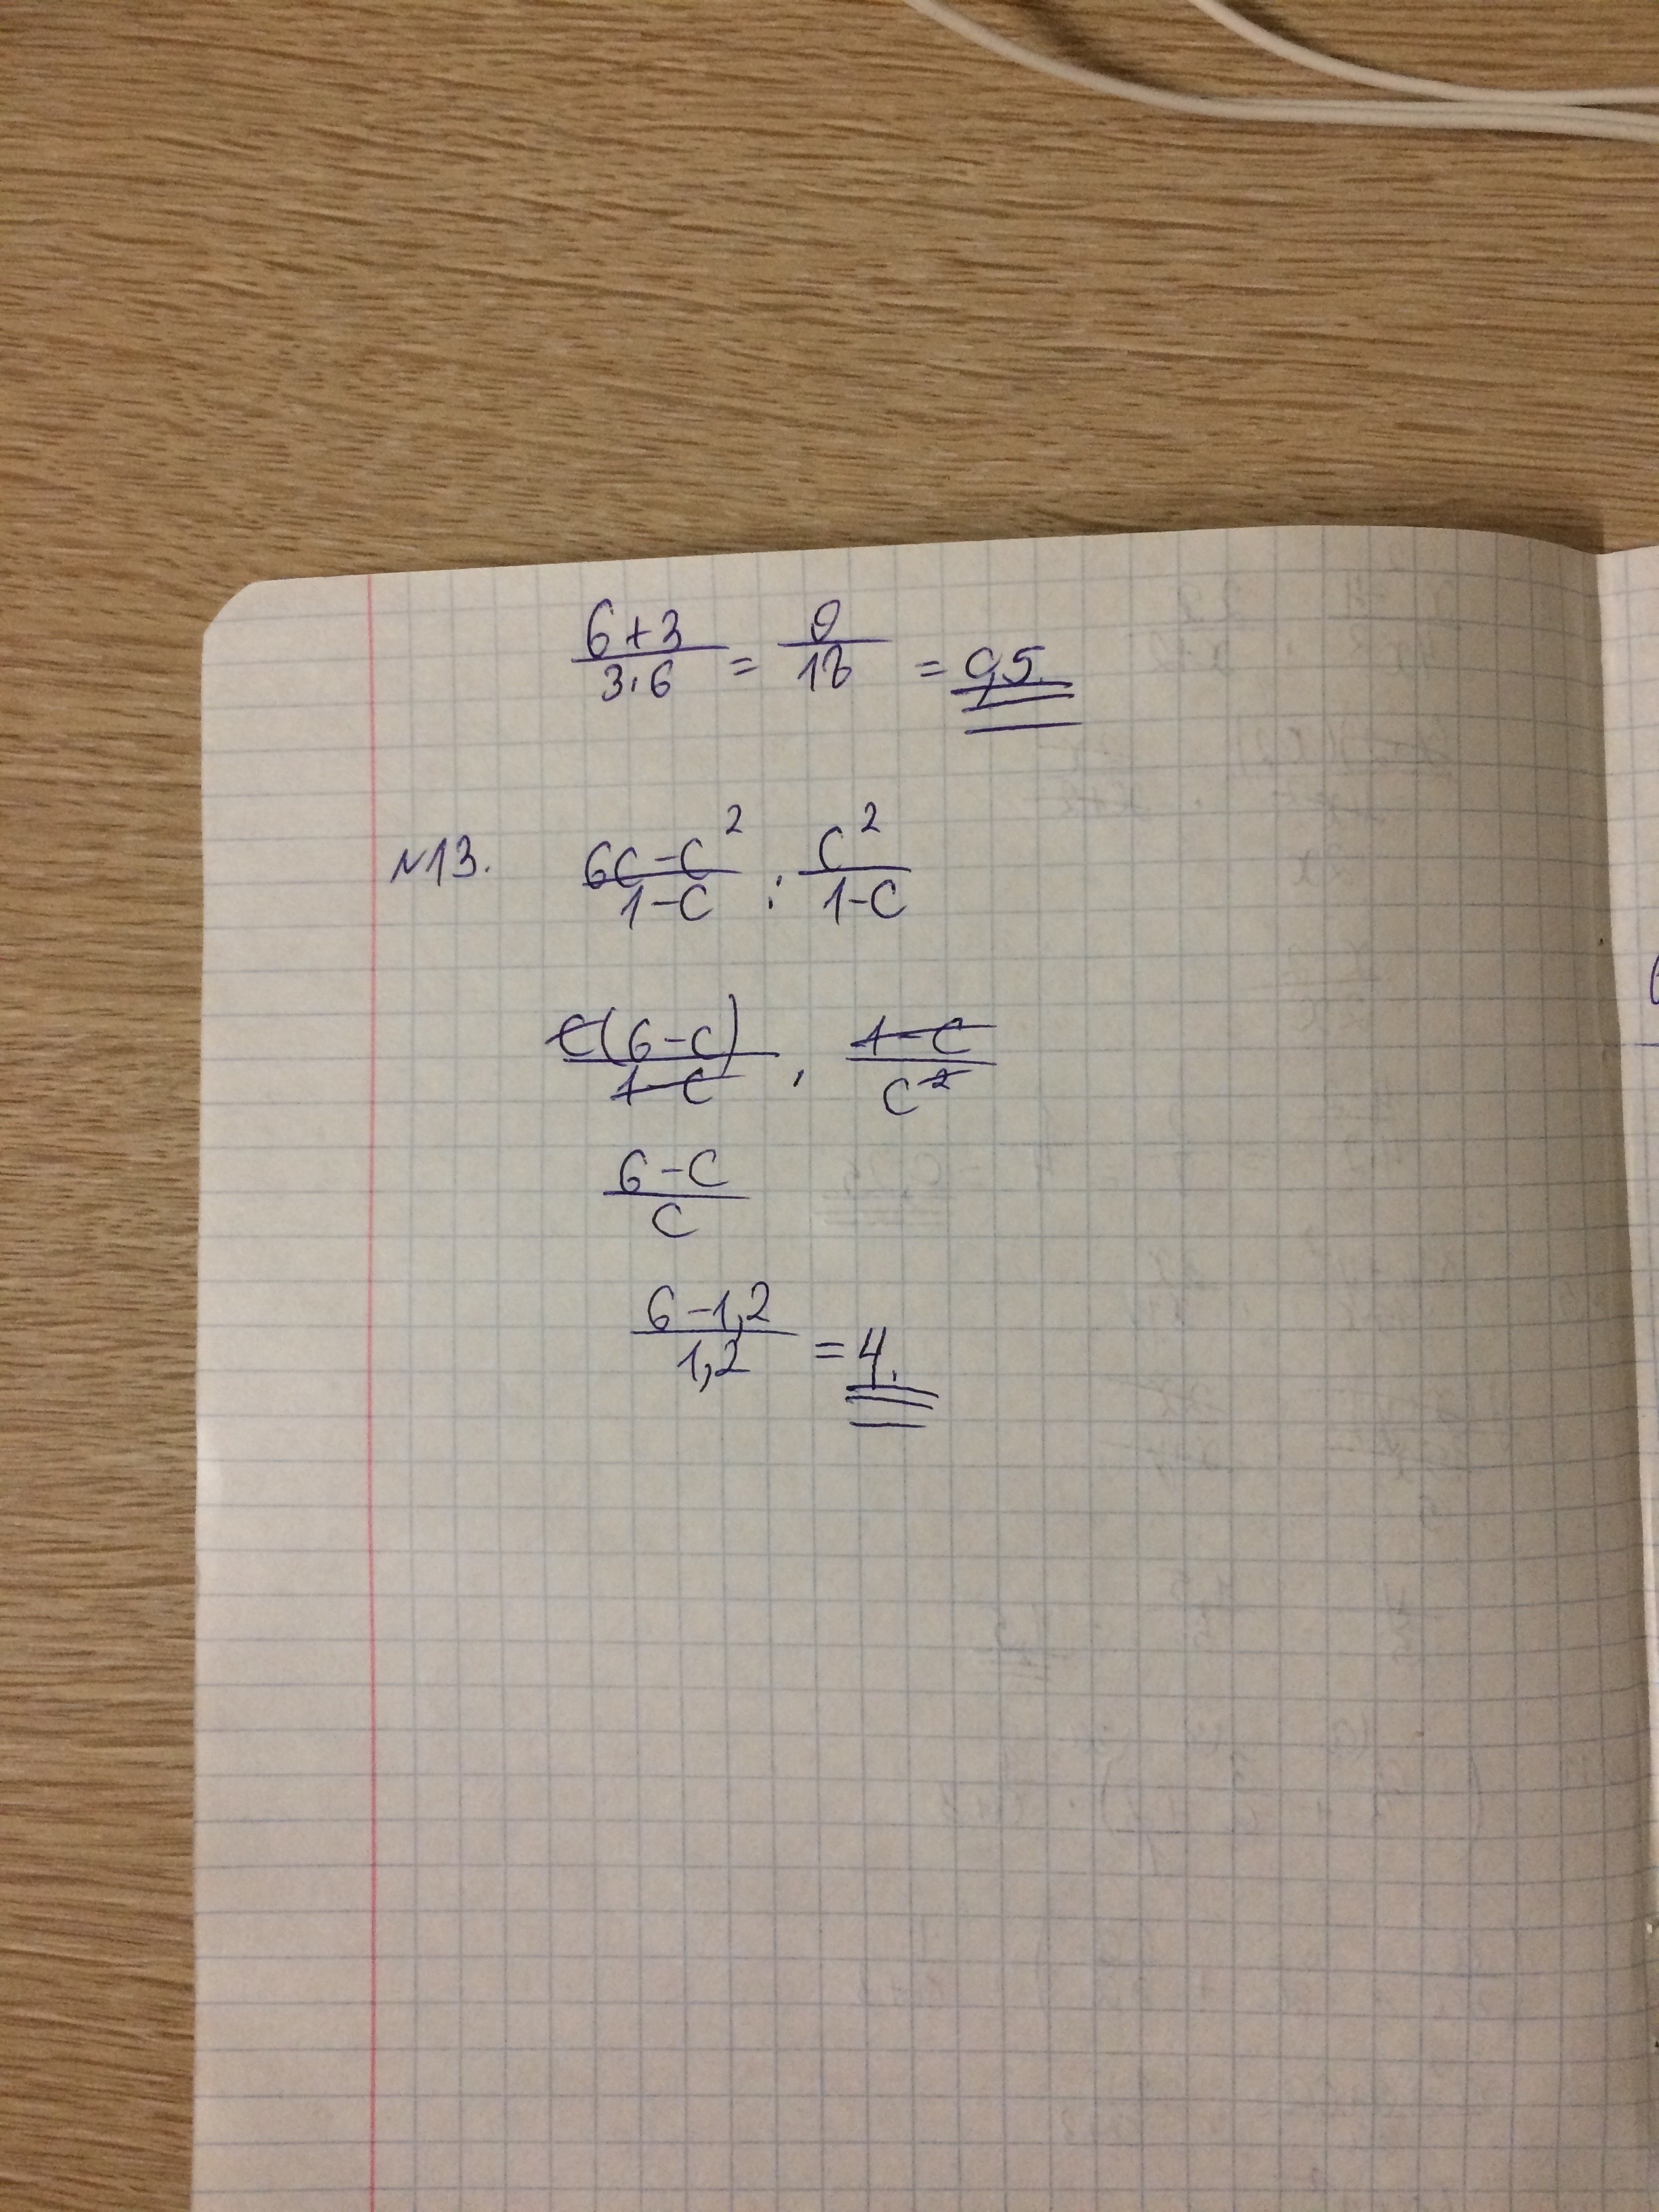 (6+3)/(3·6) = 9/18 = 0,5.
N13. (6c-c²)/(1-c) : c²/(1-c)
c(6-c)/(1-c) · (1-c)/c²
(6-c)/c
(6-1,2)/1,2 = 4.